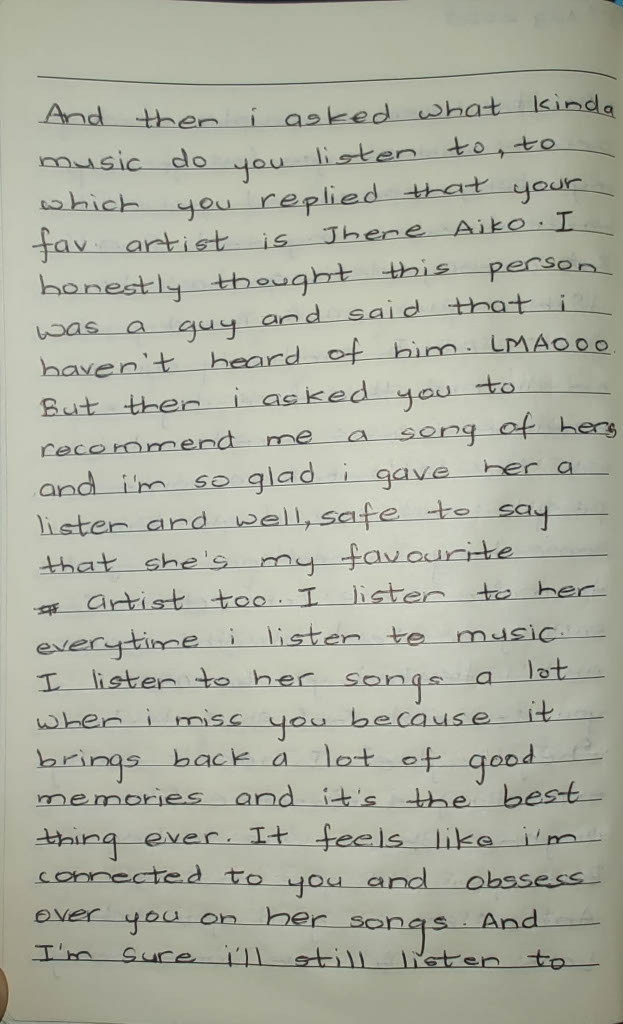 And then i asked what kinda
music do you listen to, to
which you replied that your
fav. artist is Jhene Aiko. I
honestly thought this person
was a guy and said that i
haven't heard of him. LMAOOO.
But then i asked you to
recommend me a song of hers
and i'm so glad i gave her a
listen and well, safe to say
that she's my favourite
artist too. I listen to her
everytime i listen to music.
I listen to her songs a lot
when i miss you because it
brings back a lot of good
memories and it's the best
thing ever. It feels like i'm
connected to you and obssess
over you on her songs. And
I'm sure i'll still listen to